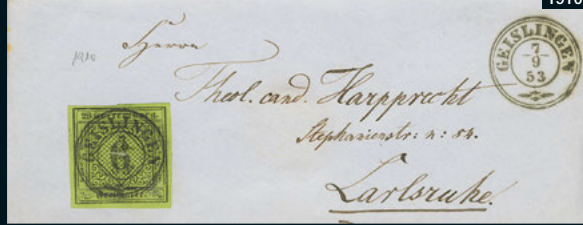 1910
GEISLINGEN
7
9
53
1910
Herrn
Theol. cand. Harpprecht
Stephanienstr: n: 54.
Carlsruhe.
GEISLINGEN